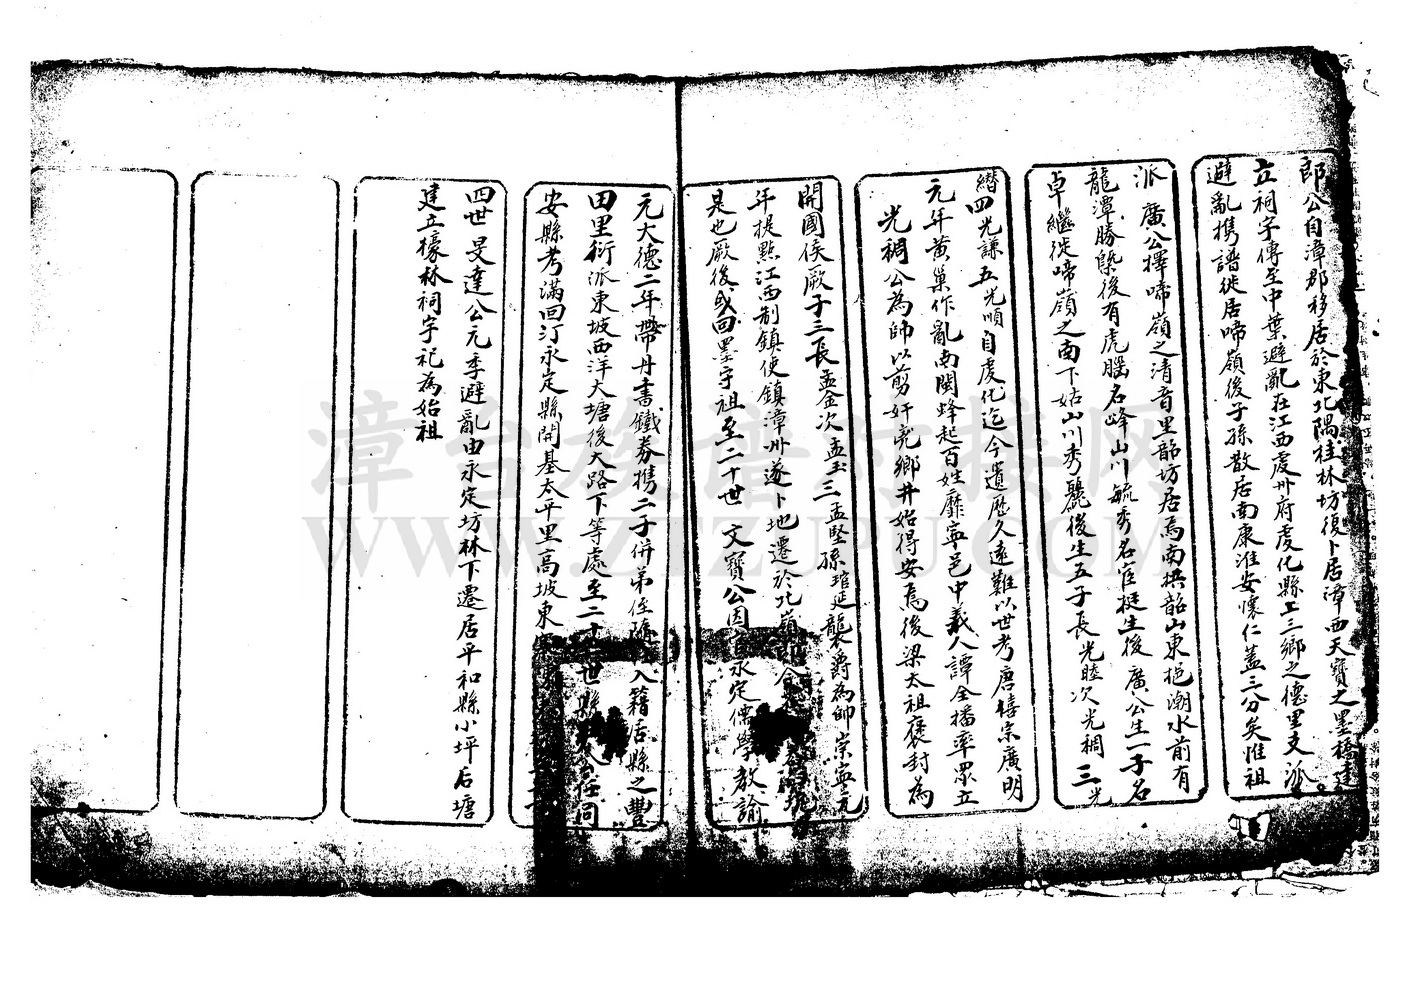 郎公自漳郡移居於東北隅桂林坊復卜居漳西天寶之墨橋建
立祠宇傳至中葉避亂在江西虔州府虔化縣工三鄉之德里支派
避亂携譜徙居啼嶺後子孫散居南康淮安懷仁蓋三分矣惟祖
派 廣公擇啼嶺之清首里韶坊居焉南拱韶山東挹潮水前有
龍潭勝槩後有虎腦名峰山川毓秀名宦挺生後廣公生一子名
卓繼徙啼嶺之南下姑山川秀麗後生五子長光睦次光稠三光
缙四光謙五光順自虔化迄今遺歷久遠難以世考唐僖宗廣明
元年黃巢作亂南閩蜂起百姓靡寧邑中義人譚全播率眾立
光稠公為帥以剪奸兇鄉井始得安焉後梁太祖褒封為
開國侯厥子三長孟金次孟玉三孟堅孫琯延襲爵為帥崇寧元
年提點江西制鎮使鎮漳州遂卜地遷於北嶺即今
是也厥後或回墨守祖至二十世 文寶公因 永定儒學教諭
元大德二年帶丹書鐵券携二子併弟侄 入籍居縣之豐
田里衍派東坡西洋大塘後大路下等處至二十 世縣 公任同
安縣考滿回汀永定縣開基太平里高坡東
四世旻達公元季避亂由永定坊林下遷居平和縣小坪后塘
建立檺林祠宇祀為始祖
漳台族谱对接网
WWW.ZTZUPU.COM